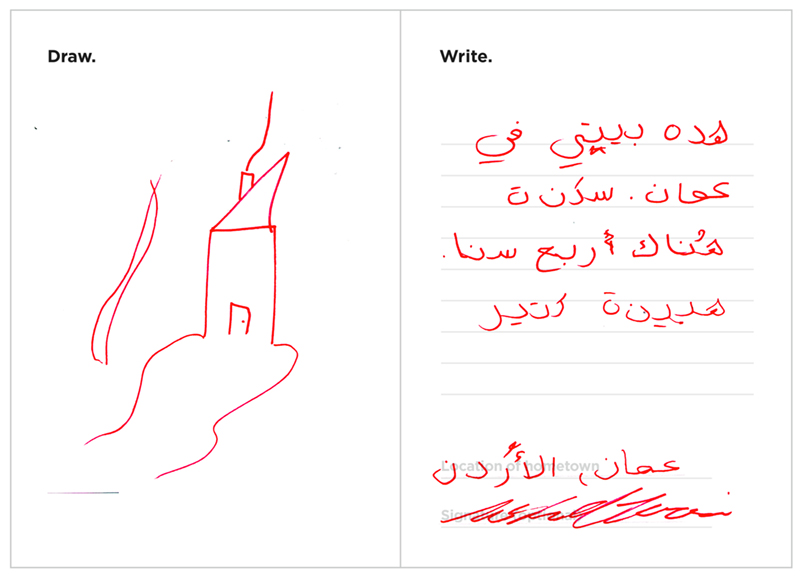 Draw.
Write.
هده بيتي في
عمان. سكن ت
هُناك أربع سنا.
كتير
عمان، الأُردن
Location of hometown